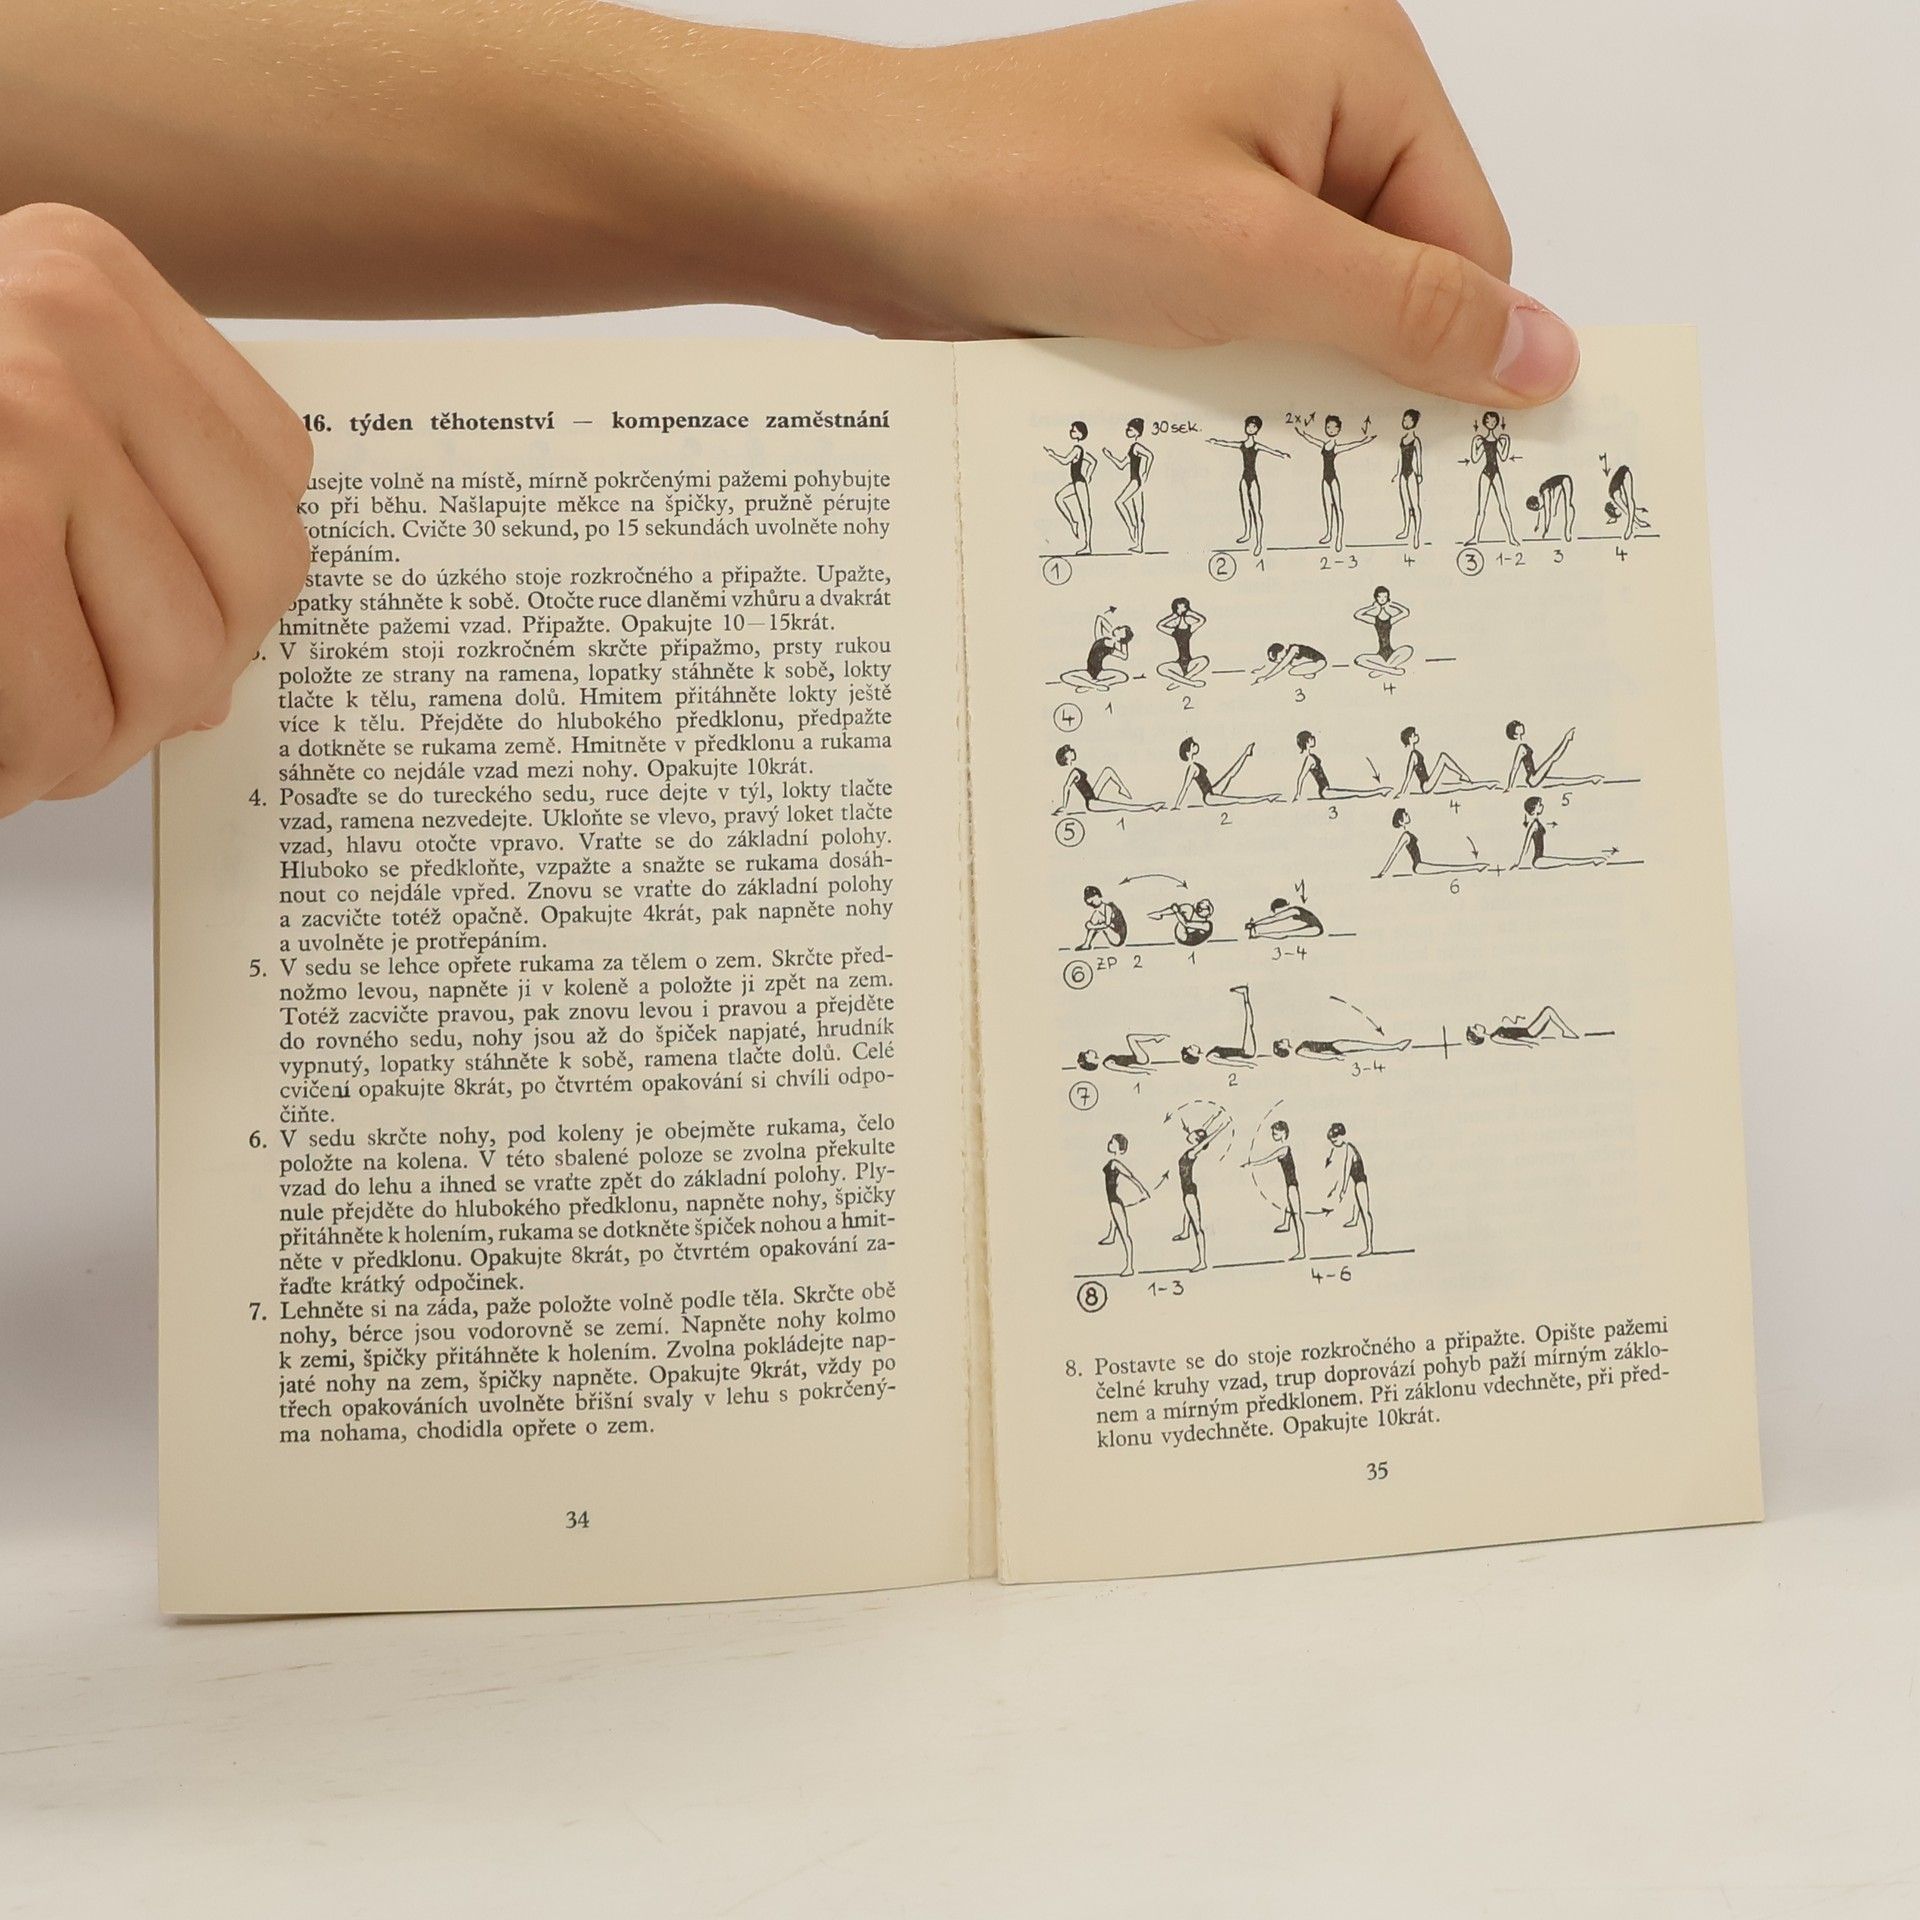 16. týden těhotenství — kompenzace zaměstnání
volně na místě, mírně pokrčenými pažemi pohybujte
při běhu. Našlapujte měkce na špičky, pružně pérujte
Cvičte 30 sekund, po 15 sekundách uvolněte nohy
se do úzkého stoje rozkročného a připažte. Upažte,
lopatky stáhněte k sobě. Otočte ruce dlaněmi vzhůru a dvakrát
hmitněte pažemi vzad. Připažte. Opakujte 10—15krát.
V širokém stoji rozkročném skrčte připažmo, prsty rukou
položte ze strany na ramena, lopatky stáhněte k sobě, lokty
tlačte k tělu, ramena dolů. Hmitem přitáhněte lokty ještě
více k tělu. Přejděte do hlubokého předklonu, předpažte
a dotkněte se rukama země. Hmitněte v předklonu a rukama
sáhněte co nejdále vzad mezi nohy. Opakujte 10krát.
4. Posaďte se do tureckého sedu, ruce dejte v týl, lokty tlačte
vzad, ramena nezvedejte. Ukloňte se vlevo, pravý loket tlačte
vzad, hlavu otočte vpravo. Vraťte se do základní polohy.
Hluboko se předkloňte, vzpažte a snažte se rukama dosáh-
nout co nejdále vpřed. Znovu se vraťte do základní polohy
a zacvičte totéž opačně. Opakujte 4krát, pak napněte nohy
a uvolněte je protřepáním.
5. V sedu se lehce opřete rukama za tělem o zem. Skrčte před-
nožmo levou, napněte ji v koleně a položte ji zpět na zem.
Totéž zacvičte pravou, pak znovu levou i pravou a přejděte
do rovného sedu, nohy jsou až do špiček napjaté, hrudník
vypnutý, lopatky stáhněte k sobě, ramena tlačte dolů. Celé
cvičení opakujte 8krát, po čtvrtém opakování si chvíli odpo-
čiňte.
6. V sedu skrčte nohy, pod koleny je obejměte rukama, čelo
položte na kolena. V této sbalené poloze se zvolna překulte
vzad do lehu a ihned se vraťte zpět do základní polohy. Ply-
nule přejděte do hlubokého předklonu, napněte nohy, špičky
přitáhněte k holením, rukama se dotkněte špiček nohou a hmit-
něte v předklonu. Opakujte 8krát, po čtvrtém opakování za-
řaďte krátký odpočinek.
7. Lehněte si na záda, paže položte volně podle těla. Skrčte obě
nohy, bérce jsou vodorovně se zemí. Napněte nohy kolmo
k zemi, špičky přitáhněte k holením. Zvolna pokládejte nap-
jaté nohy na zem, špičky napněte. Opakujte 9krát, vždy po
třech opakováních uvolněte břišní svaly v lehu s pokrčený-
ma nohama, chodidla opřete o zem.
34
30 sek.
2x
1 2 1 2-3 4 3 1-2 3 4
4 1 2 3 4
5 1 2 3 4 5
6
6 ZP 2 1 3-4
7 1 2 3-4
8 1-3 4-6
8. Postavte se do stoje rozkročného a připažte. Opište pažemi
čelné kruhy vzad, trup doprovází pohyb paží mírným záklo-
nem a mírným předklonem. Při záklonu vdechněte, při před-
klonu vydechněte. Opakujte 10krát.
35